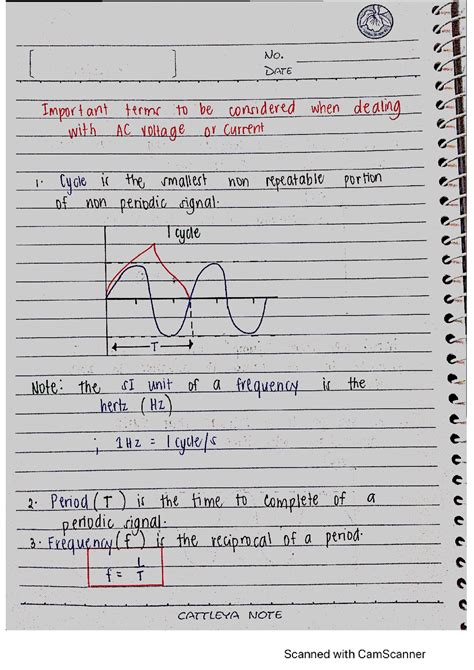 No.
DATE
Important terms to be considered when dealing
with AC voltage or current
1. Cycle is the smallest non repeatable portion
of non periodic signal.
1 cycle
T
Note: the SI unit of a frequency is the
hertz (Hz)
; 1Hz = 1 cycle/s
2. Period (T) is the time to complete of a
periodic signal.
3. Frequency (f) is the reciprocal of a period.
f = 1/T
CATTLEYA NOTE
Scanned with CamScanner